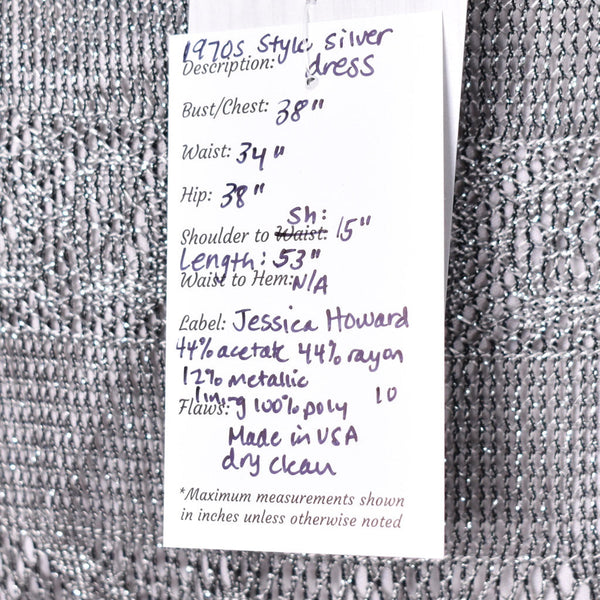 1970s style, silver
Description: dress
Bust/Chest: 38"
Waist: 34"
Hip: 38"
Sh:
Shoulder to Waist: 15"
Length: 53"
Waist to Hem: N/A
Label: Jessica Howard
44% acetate 44% rayon
12% metallic
lining 100% poly 10
Flaws:
Made in USA
dry clean
*Maximum measurements shown
in inches unless otherwise noted